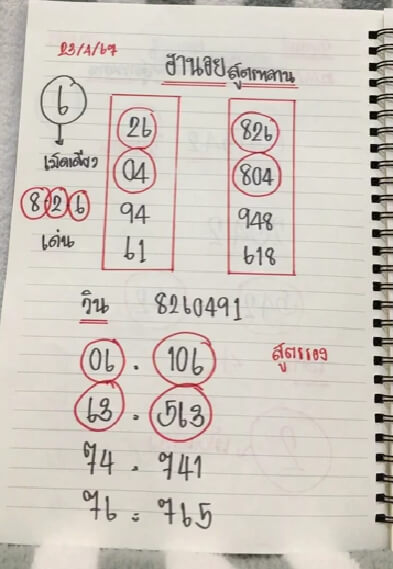 23/4/67
ฮานอย สูตรหลาน
6
26 826
เม็ดเดียว
04 804
8 2 6
94 948
เด่น
61 618
วิน 8260491
06 . 106 สูตรรอง
63 . 563
74 . 741
76 = 765